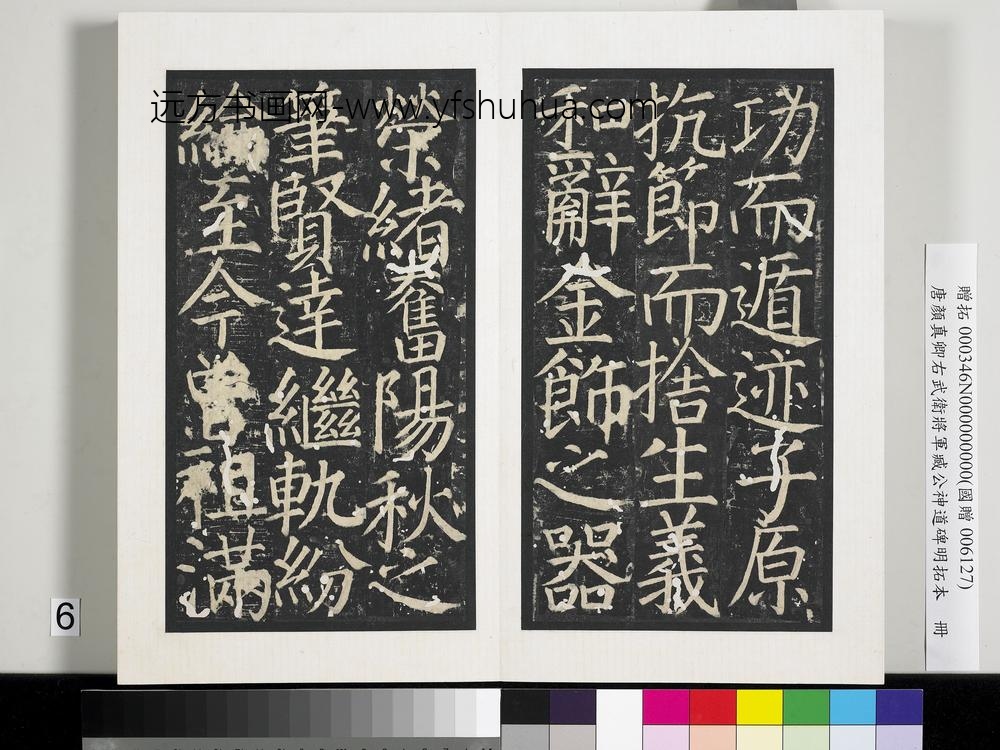 远方书画网-www.yfshuhua.com
功而遁迹子原
抗節而捨生義
和辭金飾之器
榮緒奮陽秋之
筆賢達繼軌紛
綸至今曾祖滿
贈拓 000346N000000000(國贈 006127)
唐顏真卿右武衛將軍臧公神道碑明拓本 冊
6